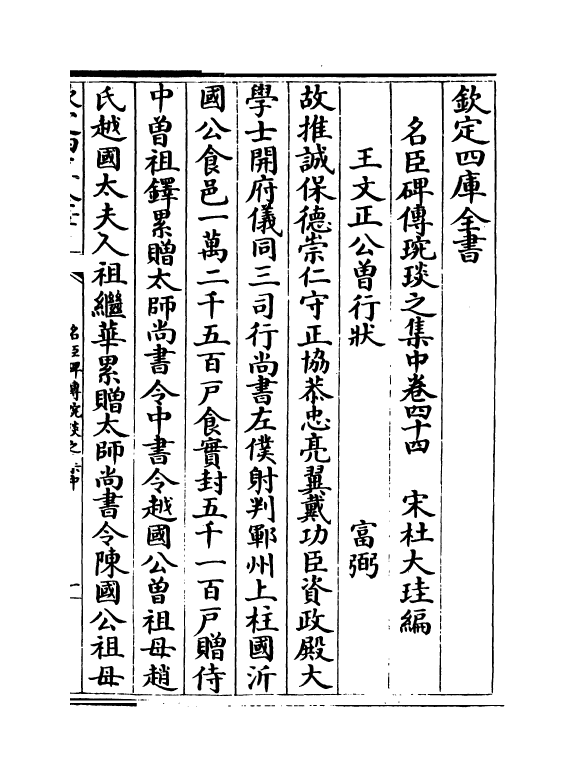 欽定四庫全書
名臣碑傳琬琰之集中卷四十四　宋杜大珪編
王文正公曽行狀　富弼
故推誠保德崇仁守正協恭忠亮翼戴功臣資政殿大
學士開府儀同三司行尚書左僕射判鄆州上柱國沂
國公食邑一萬二千五百戸食實封五千一百戸贈侍
中曽祖鐸累贈太師尚書令中書令越國公曽祖母趙
氏越國太夫人祖繼華累贈太師尚書令陳國公祖母
名臣碑傳琬琰之集中
一